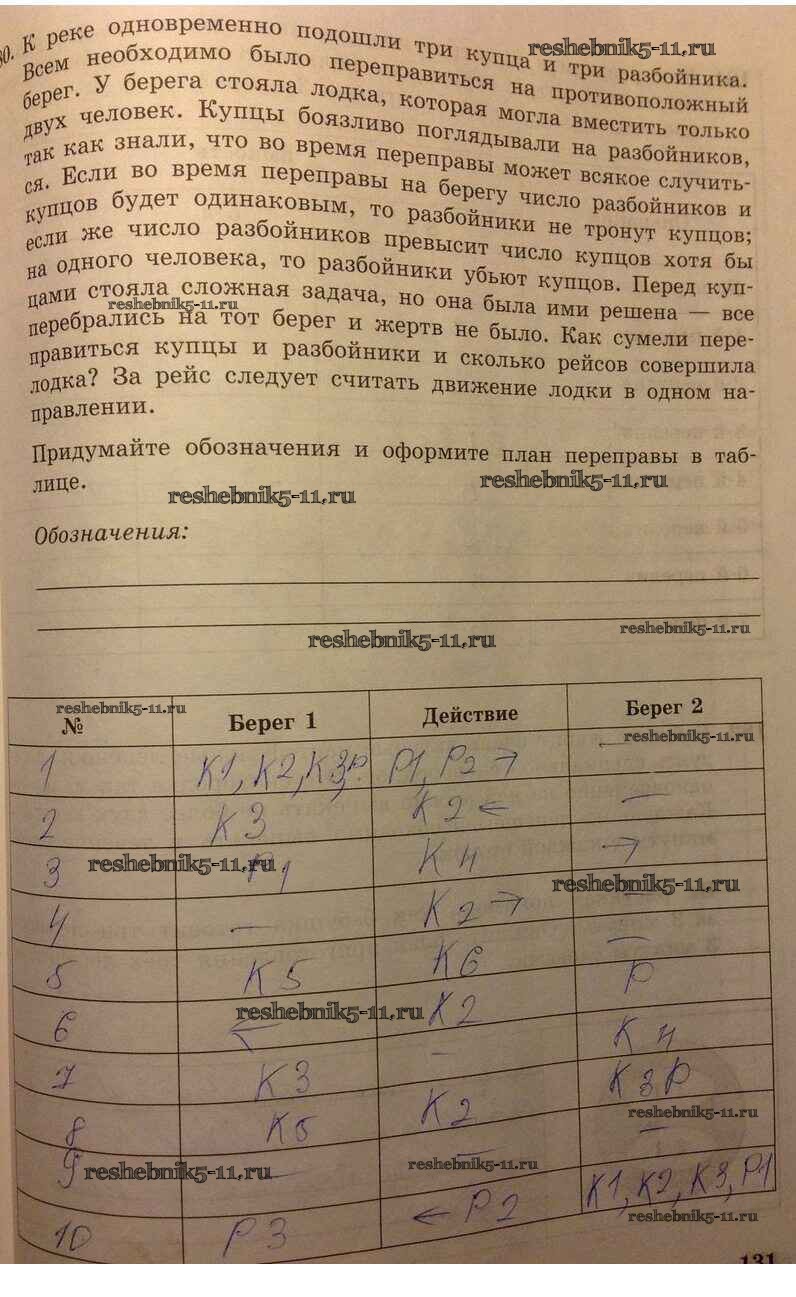 30. К реке одновременно подошли три купца и три разбойника.
reshebnik5-11.ru
Всем необходимо было переправиться на противоположный
берег. У берега стояла лодка, которая могла вместить только
двух человек. Купцы боязливо поглядывали на разбойников,
так как знали, что во время переправы может всякое случить-
ся. Если во время переправы на берегу число разбойников и
купцов будет одинаковым, то разбойники не тронут купцов;
если же число разбойников превысит число купцов хотя бы
на одного человека, то разбойники убьют купцов. Перед куп-
цами стояла сложная задача, но она была ими решена — все
reshebnik5-11.ru
перебрались на тот берег и жертв не было. Как сумели пере-
правиться купцы и разбойники и сколько рейсов совершила
лодка? За рейс следует считать движение лодки в одном на-
правлении.
Придумайте обозначения и оформите план переправы в таб-
лице.
reshebnik5-11.ru reshebnik5-11.ru
Обозначения:
reshebnik5-11.ru reshebnik5-11.ru
reshebnik5-11.ru
№ Берег 1 Действие Берег 2
reshebnik5-11.ru
1 К1, К2, К3, Р. Р1, Р2 →
2 К3 К2 ← —
3 Р1 К4 →
reshebnik5-11.ru reshebnik5-11.ru
4 — К2 → —
5 К5 К6 Р
reshebnik5-11.ru
6 ← К2 К4
7 К3 — К3Р
8 К5 К2 —
reshebnik5-11.ru
9 — —
reshebnik5-11.ru reshebnik5-11.ru
К1, К2, К3, Р1
10 Р3 ← Р2
reshebnik5-11.ru
131